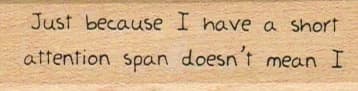 Just because I have a short
attention span doesn't mean I